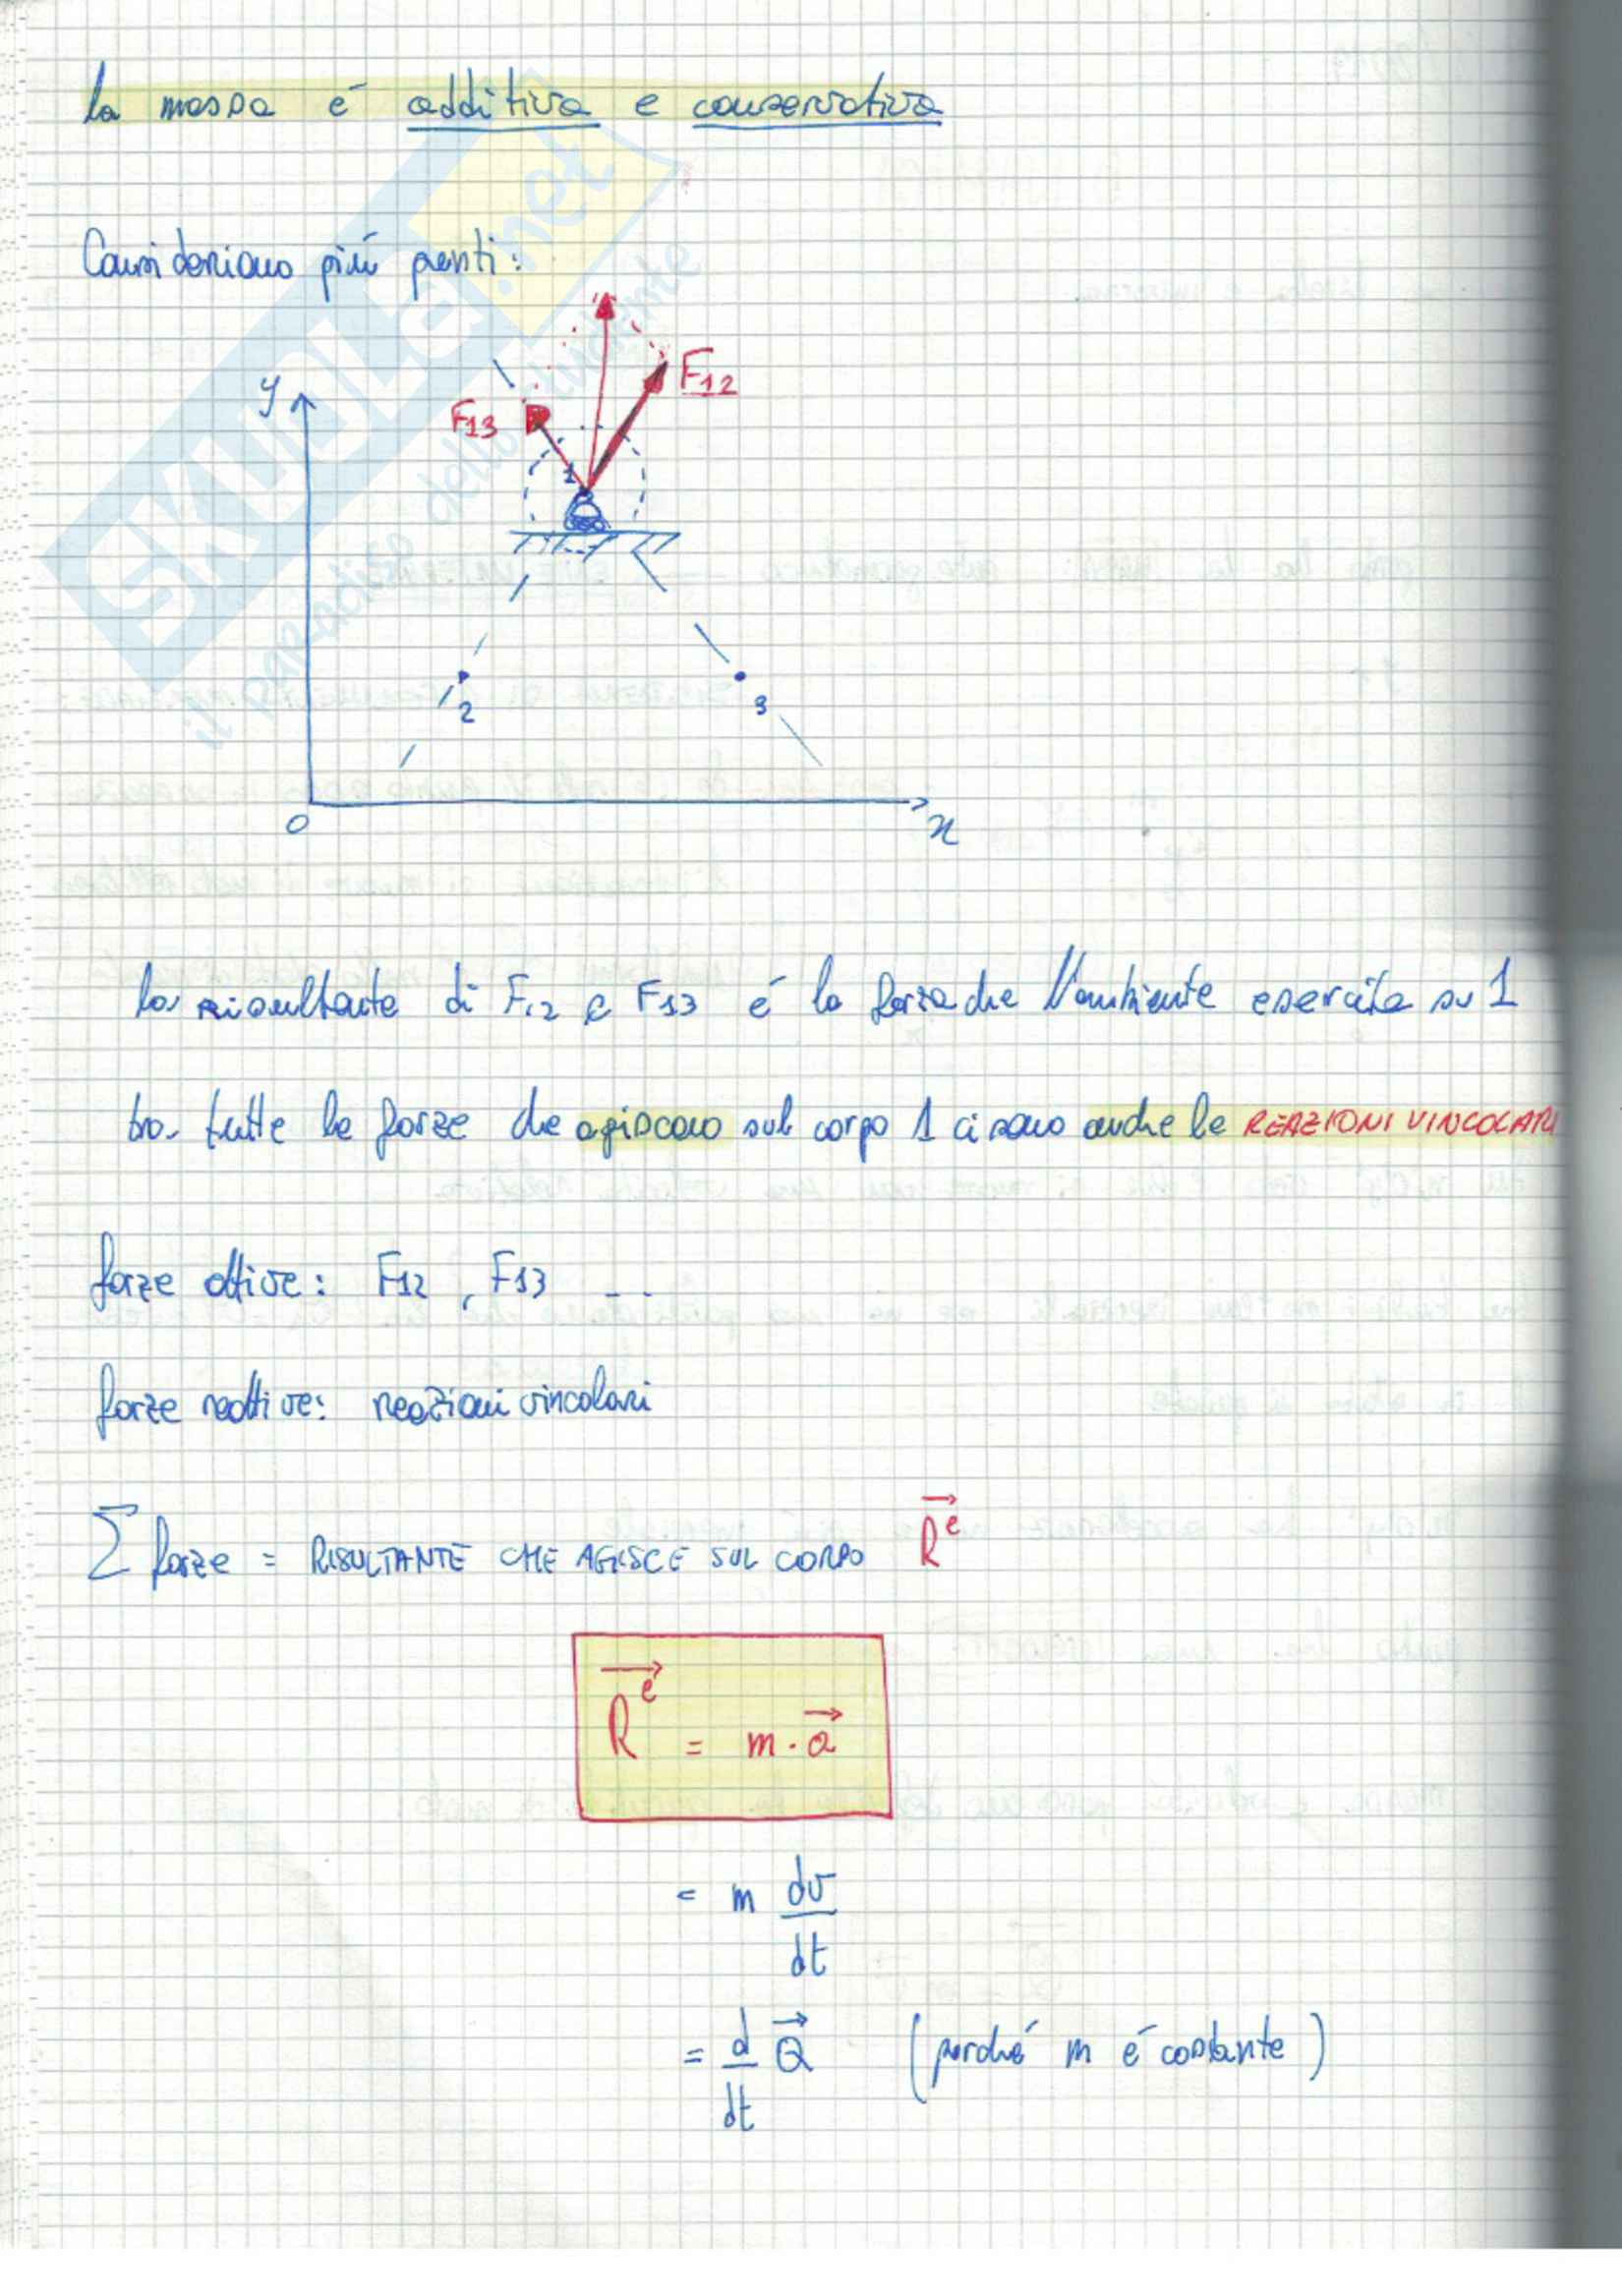 la massa é additiva e conservativa
Consideriamo più punti:
y
F13
F12
1
2
3
0
x
la risultante di F12 e F13 é la forza che l'ambiente esercita su 1
tra tutte le forze che agiscono sul corpo 1 ci sono anche le REAZIONI VINCOLARI
forze attive: F12 , F13 ...
forze reattive: reazioni vincolari
∑ forze = RISULTANTE CHE AGISCE SUL CORPO R⃗ᵉ
R⃗ᵉ = m · a⃗
= m dv/dt
= d/dt Q⃗ (perché m é costante)
SKUOLA.net
il paradiso dello studente